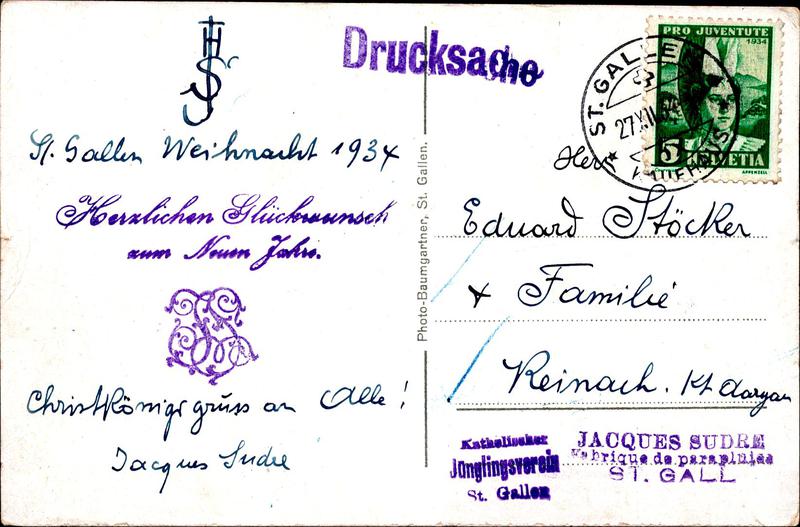 JHS
St. Gallen Weihnacht 1934
Herzlichen Glückwunsch
zum Neuen Jahre.
Christkönigsgruss an Alle!
Jacques Sudre
Photo-Baumgartner, St. Gallen.
Drucksache
ST. GALLEN
27.XII.34
PRO JUVENTUTE
1934
5
HELVETIA
APPENZELL
Herr
Eduard Stöcker
& Familie
Reinach. Kt Aargau
Katholischer
Jünglingsverein
St. Gallen
JACQUES SUDRE
Fabrique de parapluies
ST. GALL